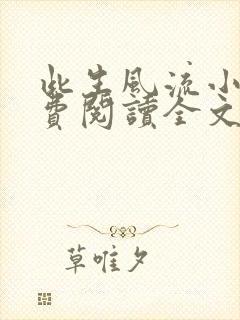 此生風流小
費閱讀全文
草唯夕